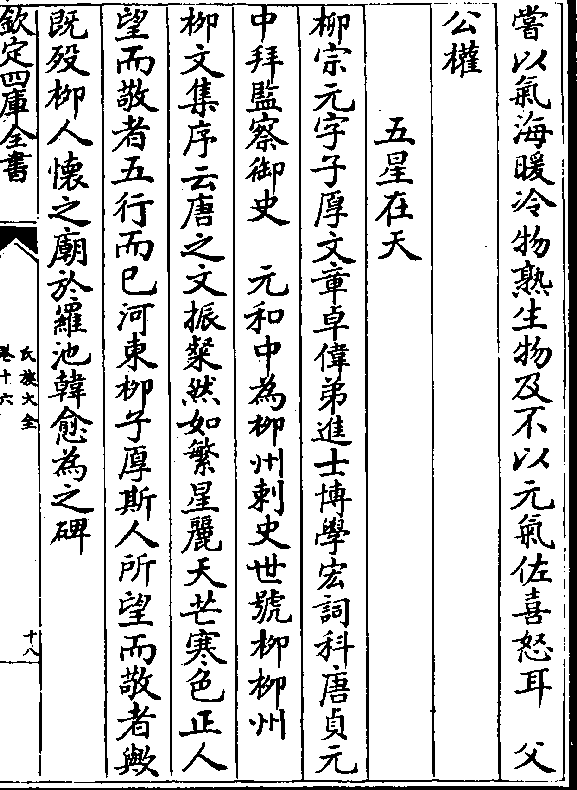 嘗以氣海暖冷物熟生物及不以元氣佐喜怒耳　父
公權
五星在天
柳宗元字子厚文章卓偉弟進士博學宏詞科唐貞元
中拜監察御史　元和中為柳州刺史世號柳柳州
柳文集序云唐之文振粲然如繁星麗天芒寒色正人
望而敬者五行而已河東柳子厚斯人所望而敬者歟
既歿柳人懷之廟於羅池韓愈為之碑
欽定四庫全書
氏族大全
卷十六
十八